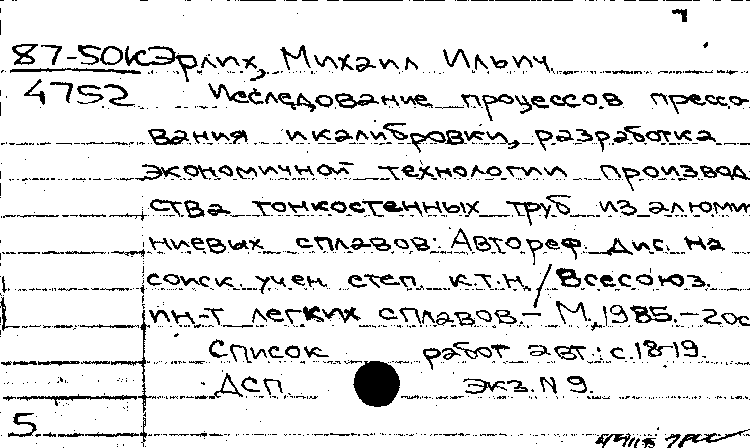 87-50к Эрлих, Михаил Ильич
4752 Исследование процессов прессо
вания и калибровки, разработка
экономичной технологии производ
ства тонкостенных труб из алюми
ниевых сплавов: Автореф. дис. на
соиск учен степ. к.т.н. / Всесоюз.
ин-т легких сплавов.- М., 1985.-20с
Список работ авт.: с.18-19.
ДСП экз. N 9.
5